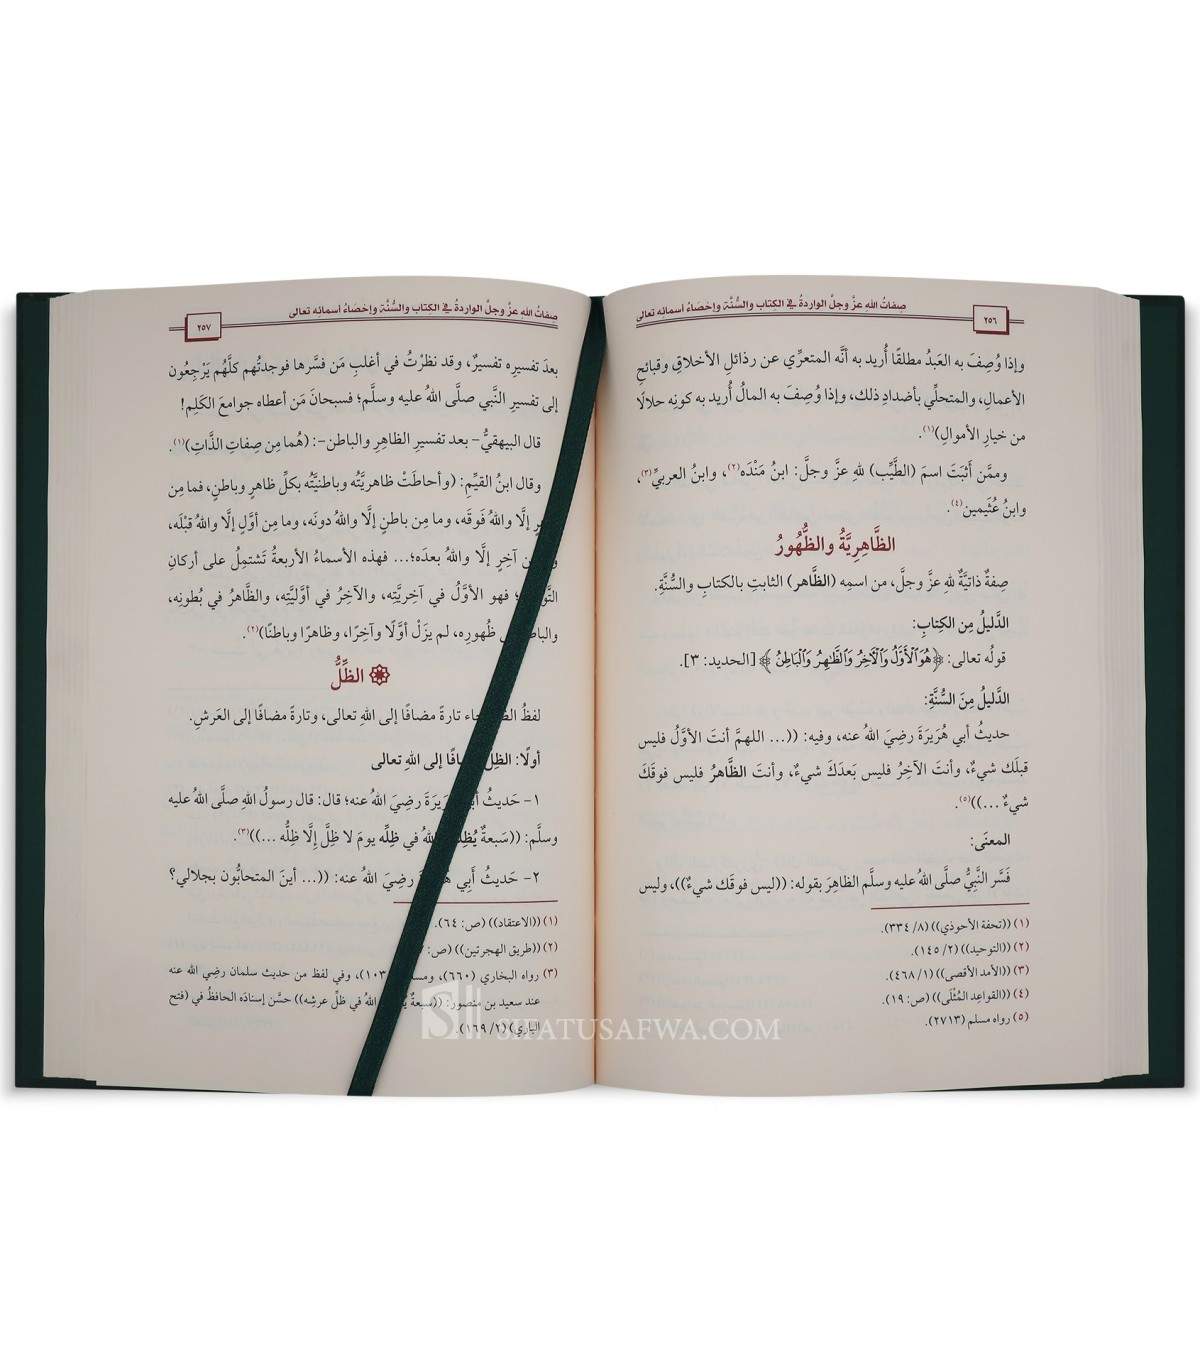 صِفاتُ الله عزَّ وجلَّ الواردةُ في الكتاب والسُّنَّة وإحصَاءُ أسمائه تعالى
٢٥٦
وإذا وُصِفَ به العَبدُ مطلقًا أُريد به أنَّه المتعرِّي عن رذائلِ الأخلاقِ وقبائحِ
الأعمالِ، والمتحلِّي بأضدادِ ذلك، وإذا وُصِفَ به المالُ أُريد به كونه حلالًا
من خيارِ الأموالِ)(١).
وممَّن أَثبَتَ اسمَ (الطَّيِّب) للهِ عزَّ وجلَّ: ابنُ مَنْدَه(٢)، وابنُ العربيِّ(٣)،
وابنُ عُثَيمين(٤).
الظَّاهِرِيَّةُ والظُّهُورُ
صِفةٌ ذاتيَّةٌ للهِ عزَّ وجلَّ، من اسمِه (الظَّاهر) الثابتِ بالكتابِ والسُّنَّةِ.
الدَّليلُ مِن الكِتابِ:
قولُه تعالى: ﴿هُوَ ٱلْأَوَّلُ وَٱلْآخِرُ وَٱلظَّاهِرُ وَٱلْبَاطِنُ﴾ [الحديد: ٣].
الدَّليلُ مِنَ السُّنَّةِ:
حديثُ أبي هُرَيرَةَ رضِيَ اللهُ عنه، وفيه: ((... اللهمَّ أنتَ الأوَّلُ فليس
قبلَك شيءٌ، وأنتَ الآخِرُ فليس بَعدَكَ شيءٌ، وأنتَ الظَّاهرُ فليس فوقَكَ
شيءٌ ...))(٥).
المعنَى:
فَسَّر النَّبيُّ صلَّى اللهُ عليه وسلَّم الظاهِرَ بقوله: ((ليس فوقَك شيءٌ))، وليس
(١) ((تحفة الأحوذي)) (٨/ ٣٣٤).
(٢) ((التوحيد)) (٢/ ١٤٥).
(٣) ((الأمد الأقصى)) (١/ ٤٦٨).
(٤) ((القواعِد المُثْلَى)) (ص: ١٩).
(٥) رواه مسلم (٢٧١٣).
صِفاتُ الله عزَّ وجلَّ الواردةُ في الكتاب والسُّنَّة وإحصَاءُ أسمائه تعالى
٢٥٧
بعدَ تفسيرِه تفسيرٌ، وقد نظرْتُ في أغلبِ مَن فسَّرها فوجدتُهم كلَّهُم يَرْجِعُون
إلى تفسيرِ النَّبي صلَّى اللهُ عليه وسلَّم؛ فسبحانَ مَن أعطاه جوامعَ الكَلِم!
قال البيهقيُّ- بعد تفسيرِ الظاهِرِ والباطن-: (هُما مِن صِفاتِ الذَّاتِ)(١).
وقال ابنُ القيِّمِ: (وأحاطَتْ ظاهريَّتُه وباطنيَّتُه بكلِّ ظاهرٍ وباطنٍ، فما مِن
إلَّا واللهُ فَوقَه، وما مِن باطنٍ إلَّا واللهُ دونَه، وما مِن أوَّلٍ إلَّا واللهُ قبْلَه،
آخِرٍ إلَّا واللهُ بعدَه؛... فهذه الأسماءُ الأربعةُ تَشتمِلُ على أركانِ
فهو الأوَّلُ في آخِريَّتِه، والآخِرُ في أوَّليَّتِه، والظَّاهرُ في بُطونِه،
ظُهورِه، لم يزَلْ أوَّلًا وآخِرًا، وظاهرًا وباطنًا)(٢).
الظِّلُّ
لفظُ جاء تارةً مضافًا إلى اللهِ تعالى، وتارةً مضافًا إلى العَرشِ.
أولًا: الظِل إلى اللهِ تعالى
١- حَديثُ رضِيَ اللهُ عنه؛ قال: قال رسولُ اللهِ صلَّى اللهُ عليه
وسلَّم: ((سَبعةٌ اللهُ في ظِلِّه يومَ لا ظِلَّ إِلَّا ظِلُّه ...))(٣).
٢- حَديثُ أبِي رضِيَ اللهُ عنه: ((... أينَ المتحابُّون بجلالي؟
(١) ((الاعتقاد)) (ص: ٦٤).
(٢) ((طريق الهجرتين)) (ص:
(٣) رواه البخاري (٦٦٠)، وفي لفظ من حديث سلمان رضِي الله عنه
عند سعيد بن منصور: ((سبعةٌ اللهُ في ظلِّ عرشِه)) حسَّن إسنادَه الحافظُ في (فتح
الباري) (٢/ ١٦٩).
SIFATUSAFWA.COM